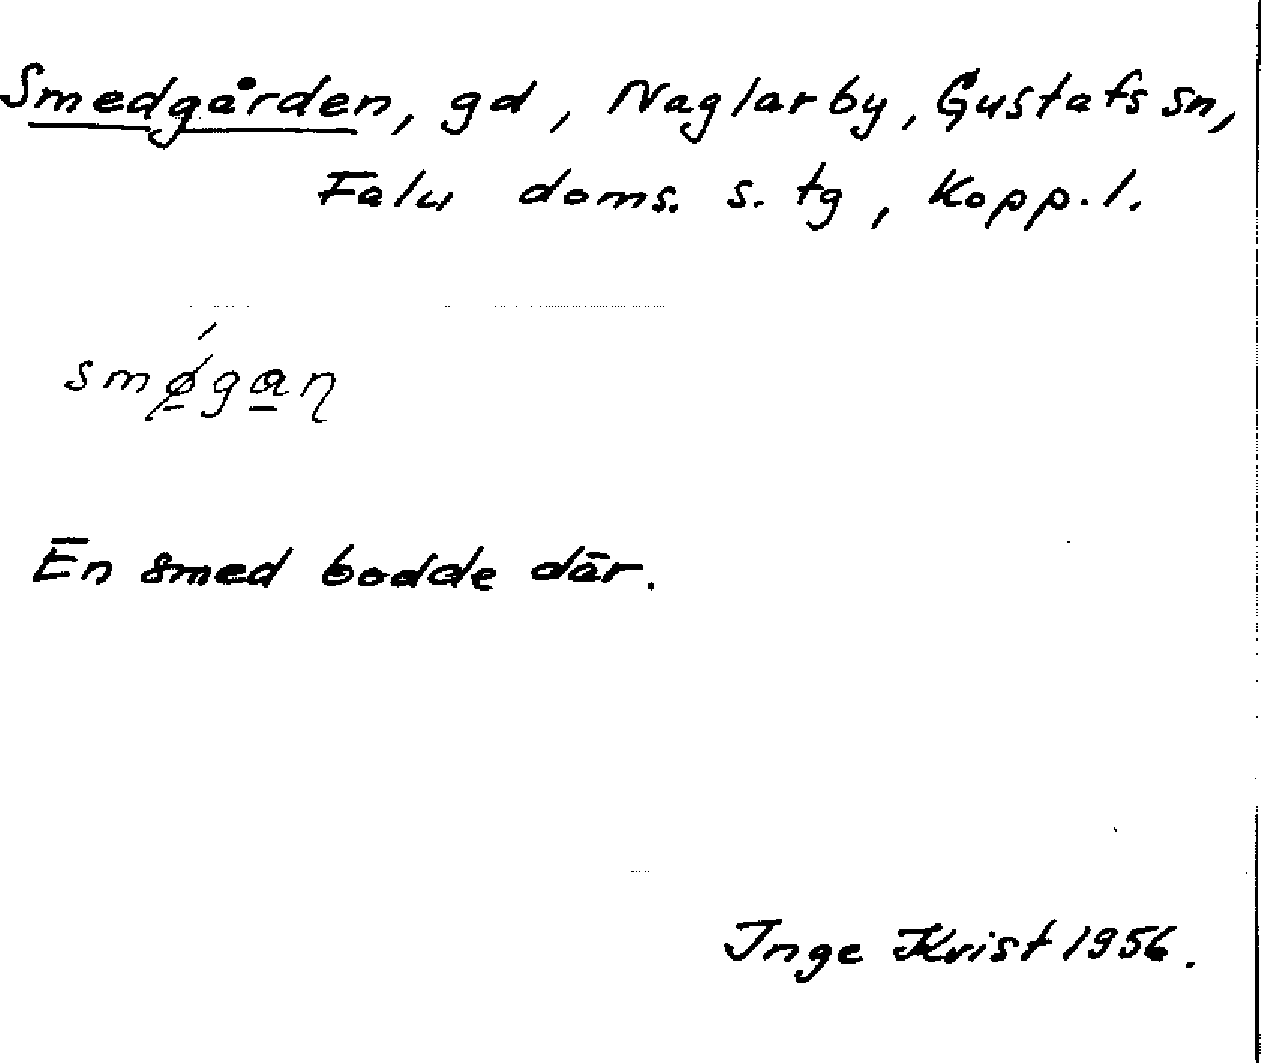 Smedgården, gd, Naglarby, Gustafs sn,
Falu doms. s. tg, Kopp. l.
En smed bodde där.
Inge Kvist 1956.